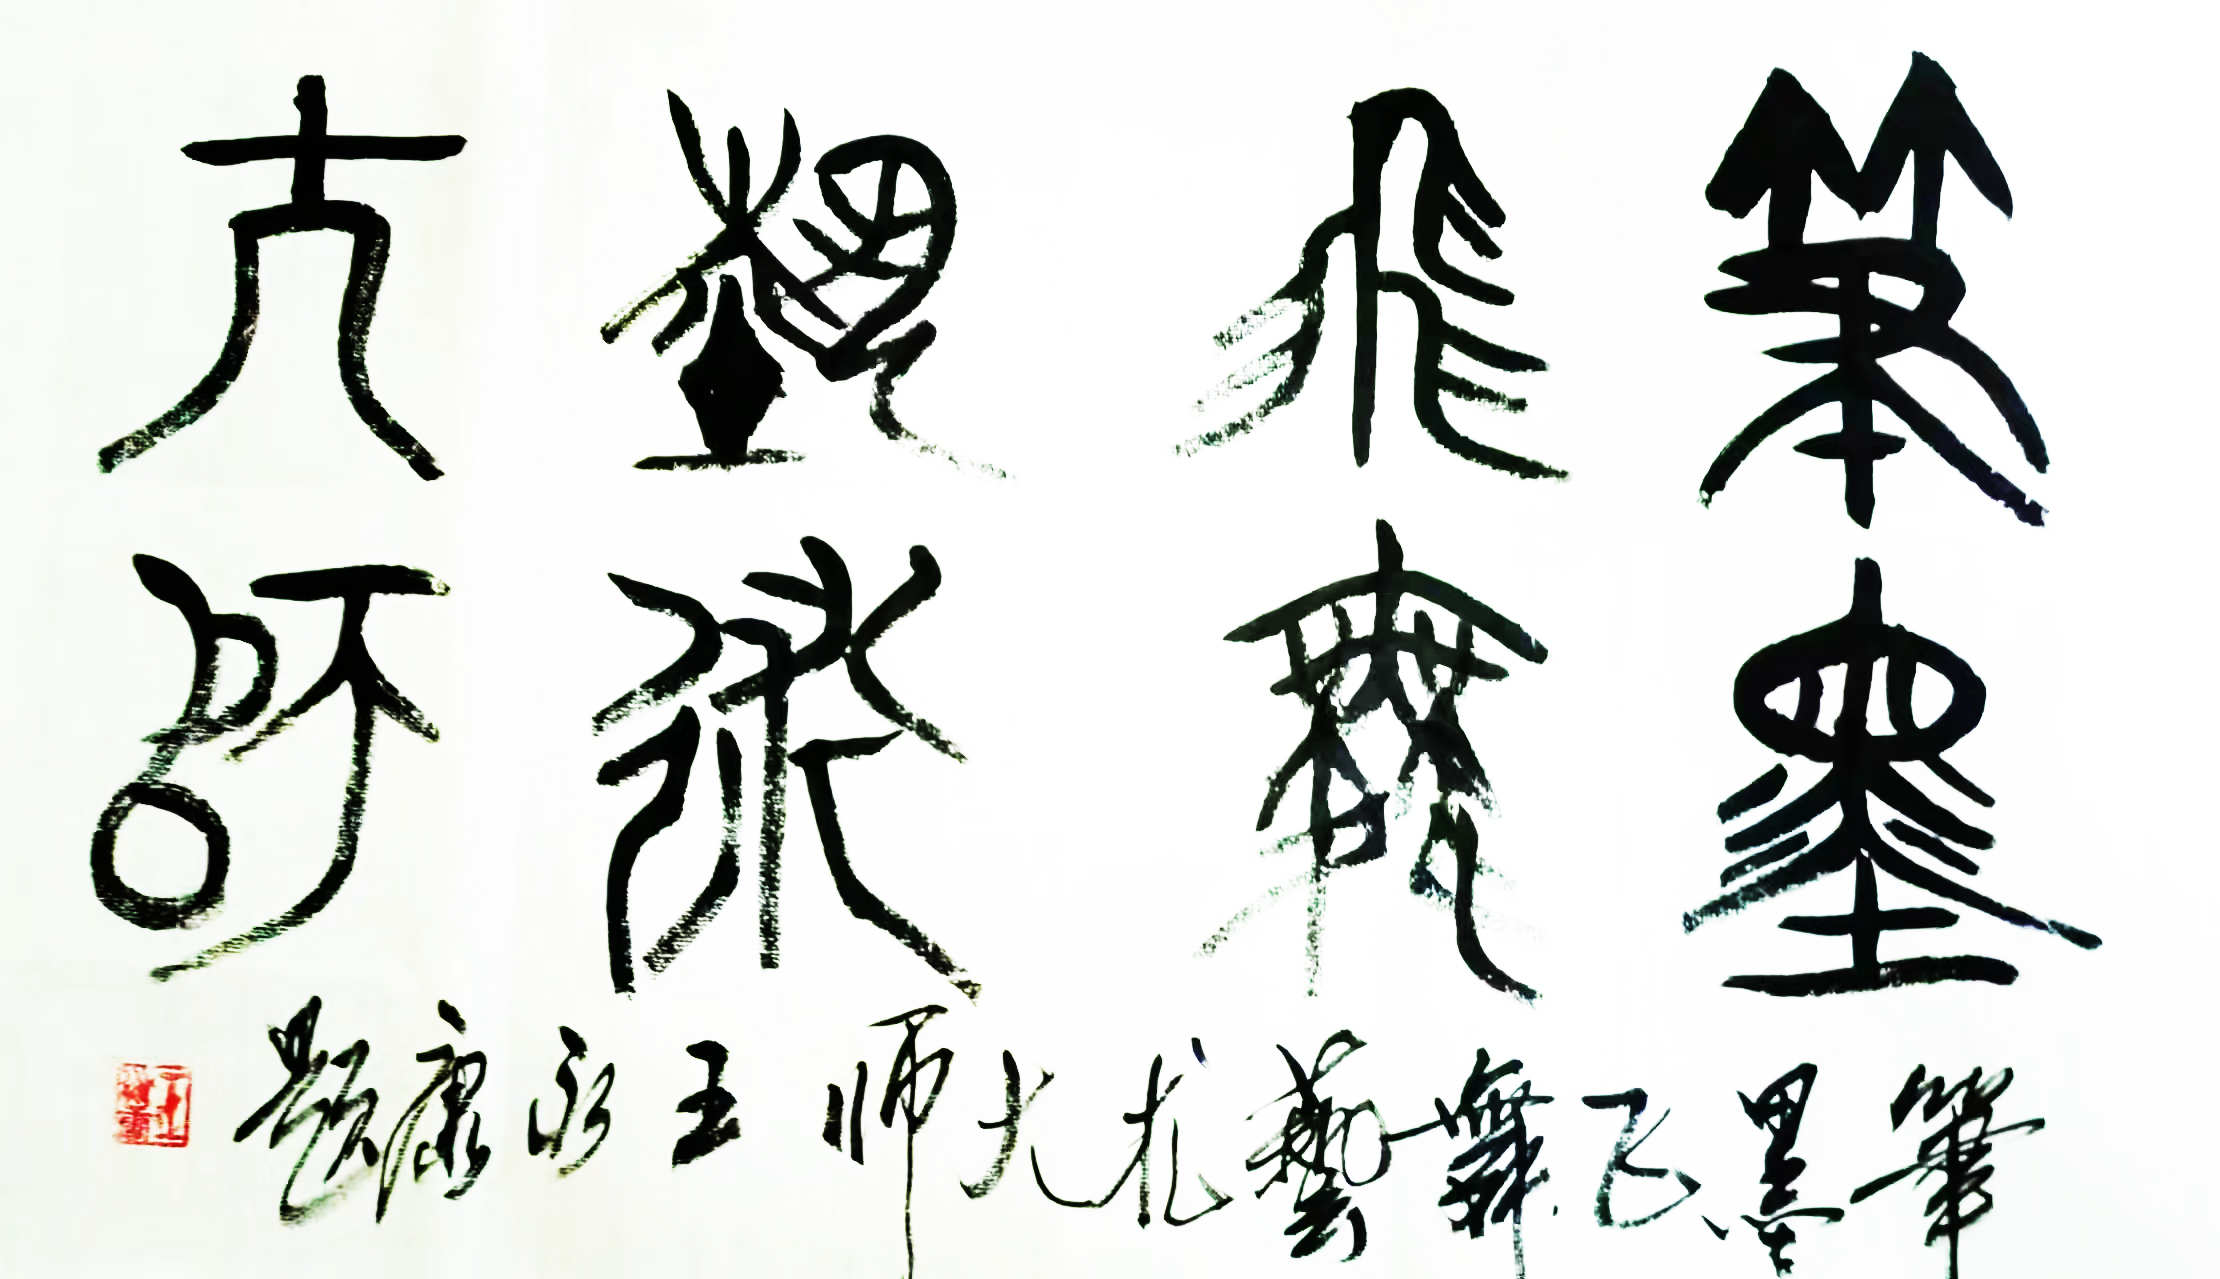 筆墨
飛舞
藝術
大師
筆墨飞舞藝术大师王永康题